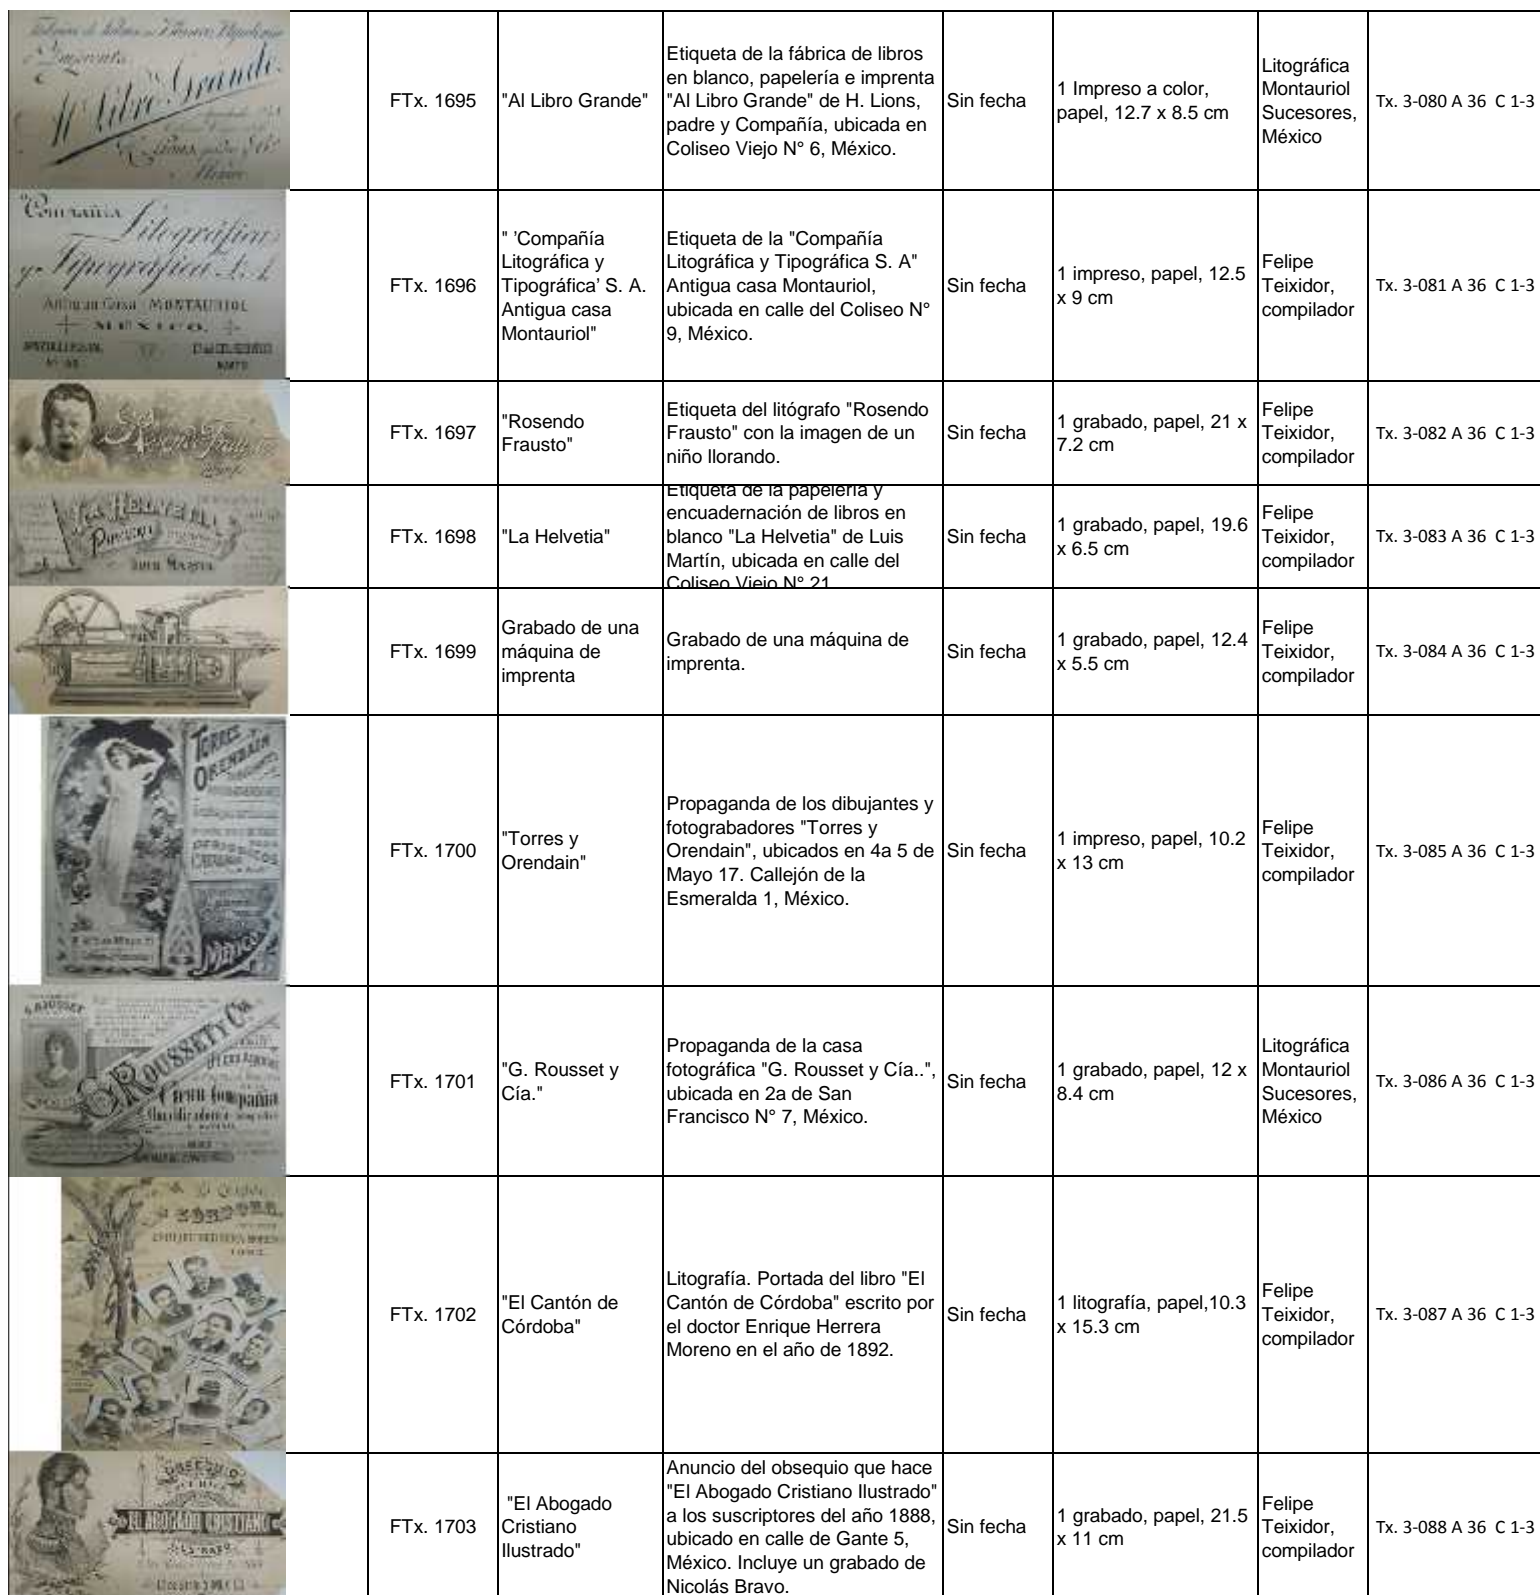 Al Libro Grande
México
FTx. 1695
"Al Libro Grande"
Etiqueta de la fábrica de libros
en blanco, papelería e imprenta
"Al Libro Grande" de H. Lions,
padre y Compañía, ubicada en
Coliseo Viejo N° 6, México.
Sin fecha
1 Impreso a color,
papel, 12.7 x 8.5 cm
Litográfica
Montauriol
Sucesores,
México
Tx. 3-080 A 36 C 1-3
Compañía Litográfica
y Tipográfica S. A.
Antigua Casa MONTAURIOL
MÉXICO.
FTx. 1696
" 'Compañía
Litográfica y
Tipográfica' S. A.
Antigua casa
Montauriol"
Etiqueta de la "Compañía
Litográfica y Tipográfica S. A"
Antigua casa Montauriol,
ubicada en calle del Coliseo N°
9, México.
Sin fecha
1 impreso, papel, 12.5
x 9 cm
Felipe
Teixidor,
compilador
Tx. 3-081 A 36 C 1-3
Rosendo Frausto
FTx. 1697
"Rosendo
Frausto"
Etiqueta del litógrafo "Rosendo
Frausto" con la imagen de un
niño llorando.
Sin fecha
1 grabado, papel, 21 x
7.2 cm
Felipe
Teixidor,
compilador
Tx. 3-082 A 36 C 1-3
LA HELVETIA
LUIS MARTIN
FTx. 1698
"La Helvetia"
Etiqueta de la papelería y
encuadernación de libros en
blanco "La Helvetia" de Luis
Martín, ubicada en calle del
Coliseo Viejo N° 21
Sin fecha
1 grabado, papel, 19.6
x 6.5 cm
Felipe
Teixidor,
compilador
Tx. 3-083 A 36 C 1-3
FTx. 1699
Grabado de una
máquina de
imprenta
Grabado de una máquina de
imprenta.
Sin fecha
1 grabado, papel, 12.4
x 5.5 cm
Felipe
Teixidor,
compilador
Tx. 3-084 A 36 C 1-3
TORRES Y
ORENDAIN
México
FTx. 1700
"Torres y
Orendain"
Propaganda de los dibujantes y
fotograbadores "Torres y
Orendain", ubicados en 4a 5 de
Mayo 17. Callejón de la
Esmeralda 1, México.
Sin fecha
1 impreso, papel, 10.2
x 13 cm
Felipe
Teixidor,
compilador
Tx. 3-085 A 36 C 1-3
G. ROUSSET Y CIA.
Gran Compañía
FTx. 1701
"G. Rousset y
Cía."
Propaganda de la casa
fotográfica "G. Rousset y Cía..",
ubicada en 2a de San
Francisco N° 7, México.
Sin fecha
1 grabado, papel, 12 x
8.4 cm
Litográfica
Montauriol
Sucesores,
México
Tx. 3-086 A 36 C 1-3
CÓRDOBA
ENRIQUE HERRERA MORENO
1892
FTx. 1702
"El Cantón de
Córdoba"
Litografía. Portada del libro "El
Cantón de Córdoba" escrito por
el doctor Enrique Herrera
Moreno en el año de 1892.
Sin fecha
1 litografía, papel,10.3
x 15.3 cm
Felipe
Teixidor,
compilador
Tx. 3-087 A 36 C 1-3
OBSEQUIO
EL ABOGADO CRISTIANO
FTx. 1703
"El Abogado
Cristiano
Ilustrado"
Anuncio del obsequio que hace
"El Abogado Cristiano Ilustrado"
a los suscriptores del año 1888,
ubicado en calle de Gante 5,
México. Incluye un grabado de
Nicolás Bravo.
Sin fecha
1 grabado, papel, 21.5
x 11 cm
Felipe
Teixidor,
compilador
Tx. 3-088 A 36 C 1-3